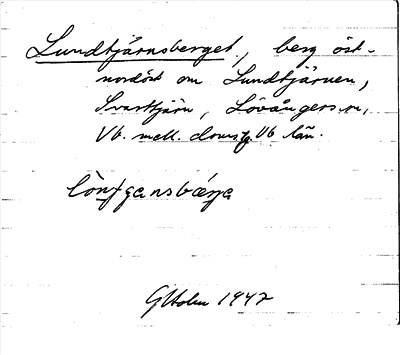 Lundtjärnsberget, berg öst-
nordöst om Lundtjärnen,
Svarttjärn, Lövångers sn,
Vb. mell. doms. Vb län.
G Holm 1942